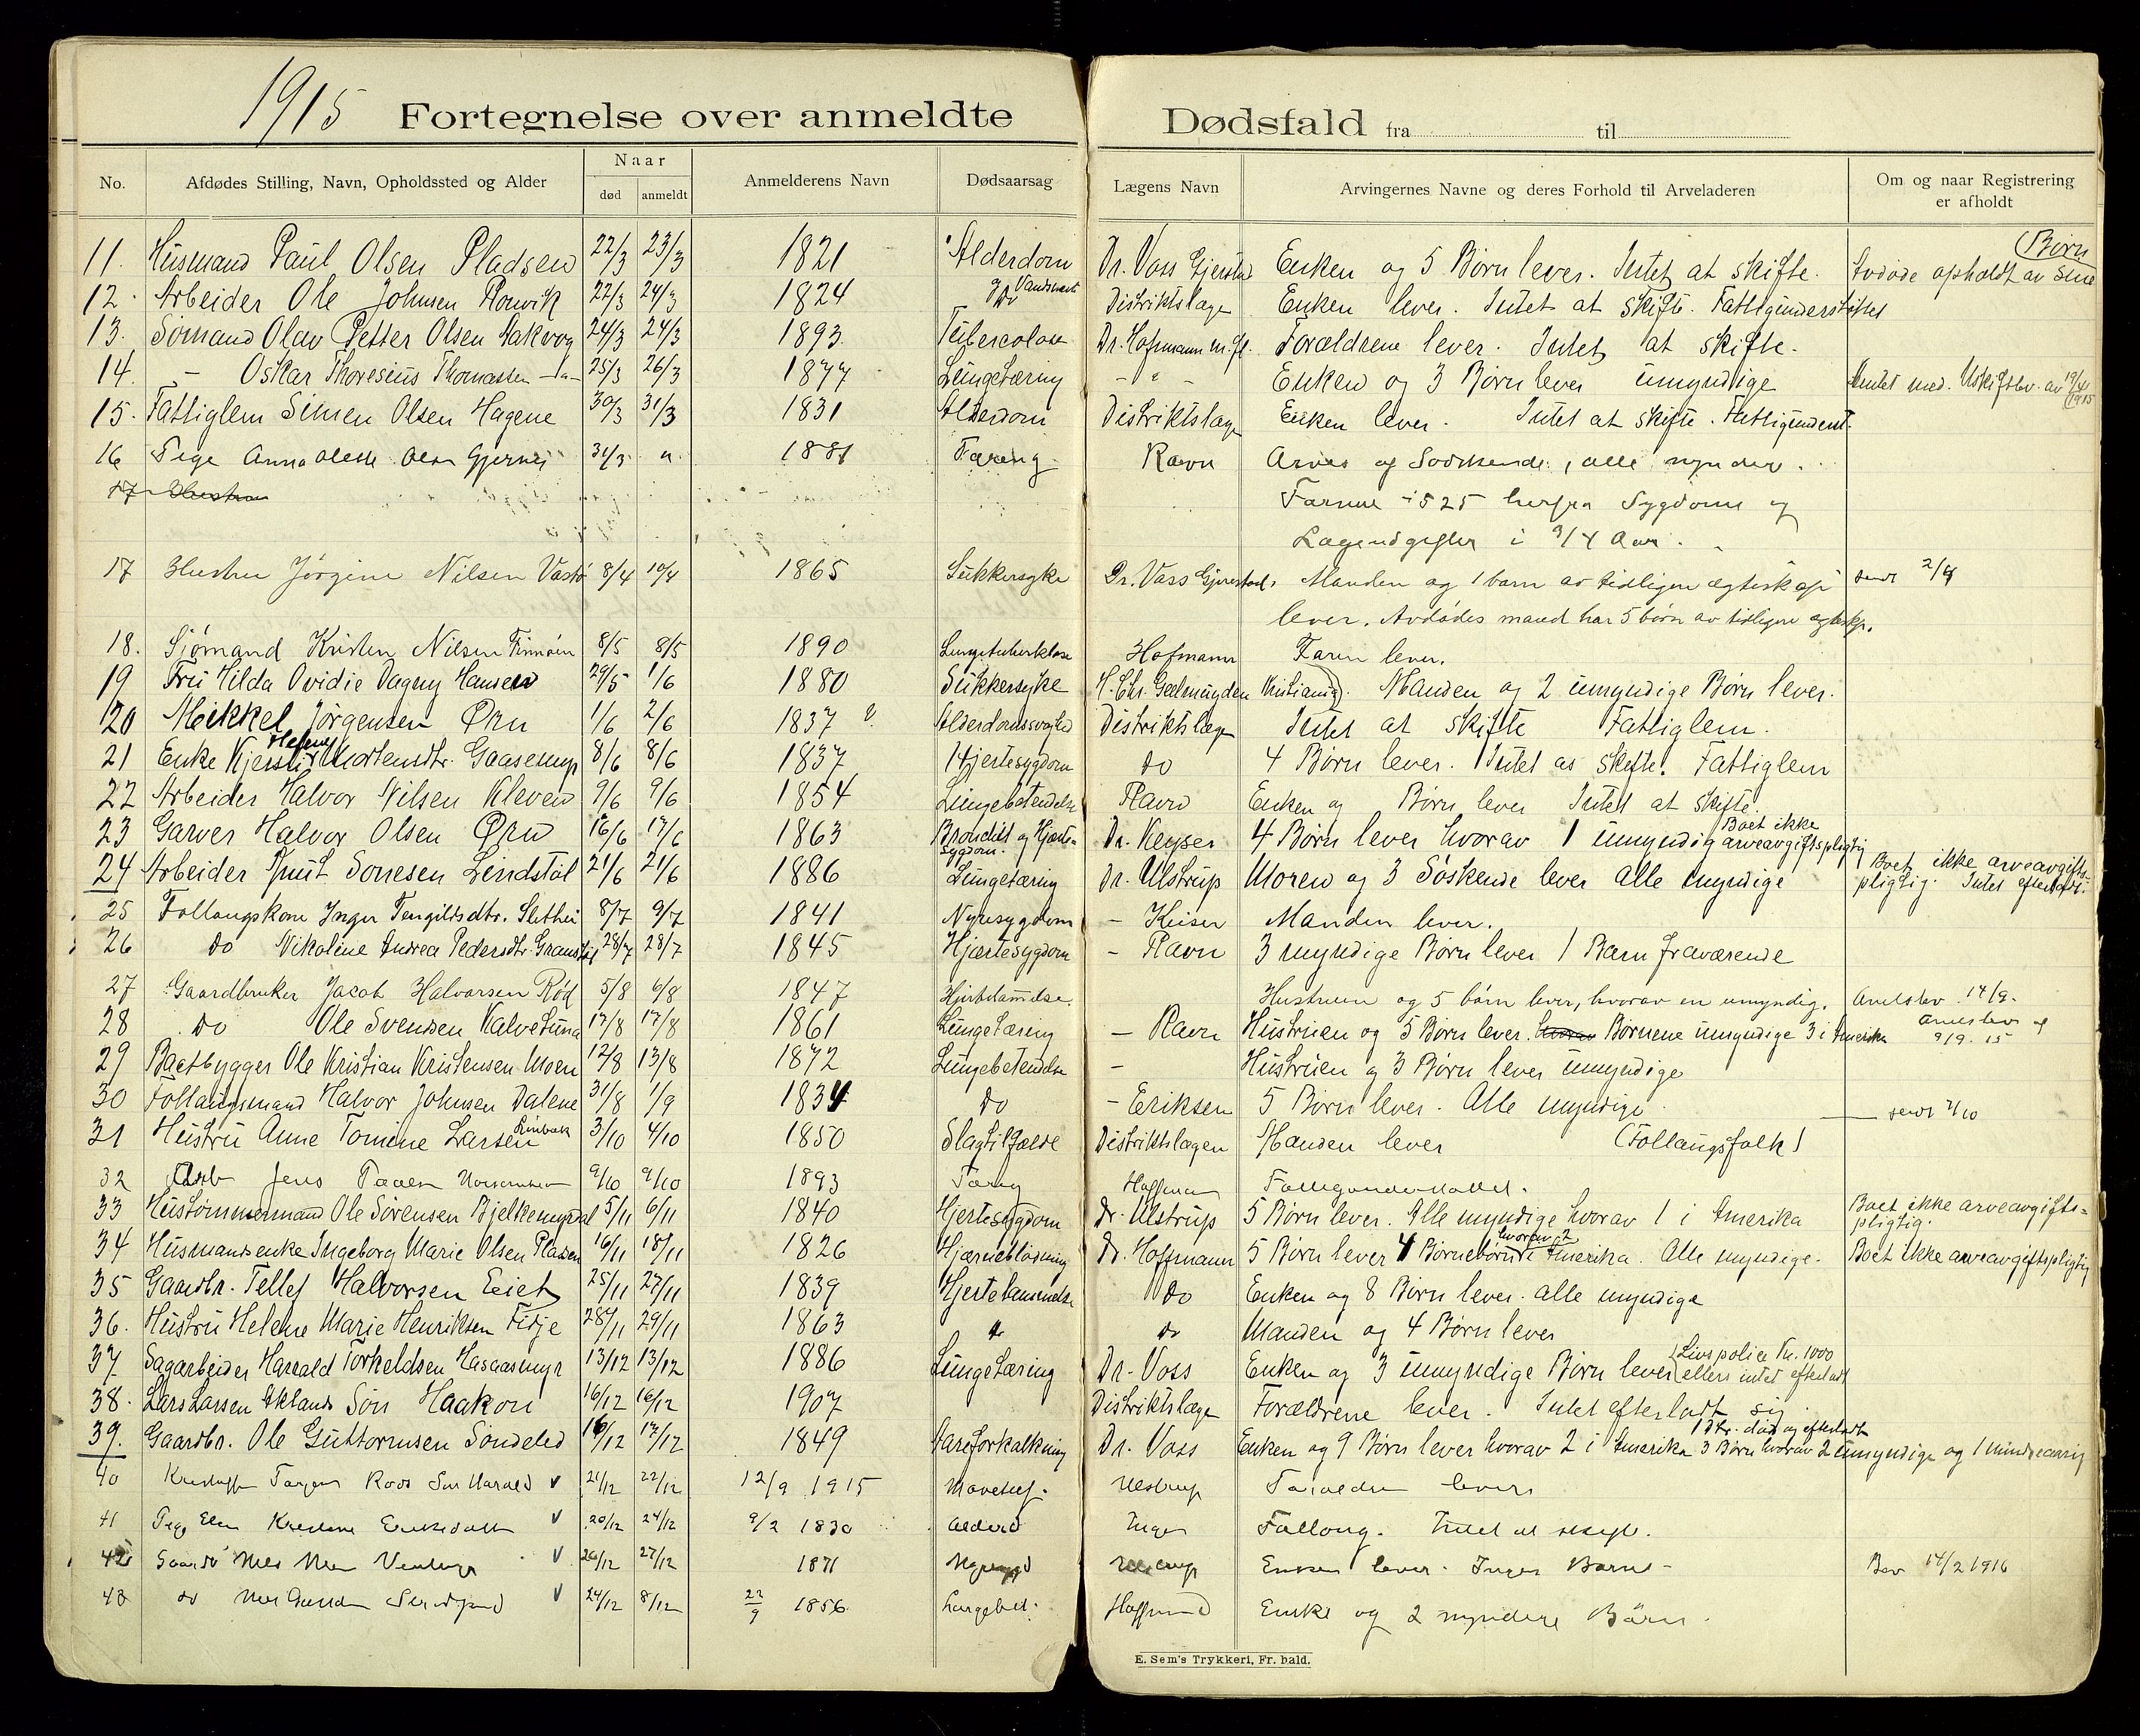 1915 Fortegnelse over anmeldte Dødsfald fra til
No. Afdødes Stilling, Navn, Opholdssted og Alder Naar død anmeldt Anmelderens Navn Dødsaarsag Lægens Navn Arvingernes Navne og deres Forhold til Arveladeren Om og naar Registrering er afholdt
11. Husmand Paul Olsen Pladsen 22/3 23/3 1821 Alderdom Dr. Voss Gjerstad Enken og 5 Børn lever. Intet at skifte. Avdøde opholdt av sine Børn
12. Arbeider Ole Johnsen 22/3 24/3 1824 Do Distriktslæge Enken lever. Intet at skifte. Fattigunderstøttet
13. Sømand Olav Petter Olsen Hakvog 24/3 24/3 1893. Tuberculose Dr. Hofmann Forældrene lever. Intet at skifte.
14. - Oskar Thoresius Thomassen 25/3 26/3 1877 Lungetæring - " - Enken og 3 Børn lever umyndige
15. Fattiglem Simen Olsen Hagene 30/3 31/3 1831 Alderdom Distriktslæge Enken lever. Intet at skifte. Fattigunderst.
16 Pige Anna Olsen 31/3 " 1881 Tæring Ravn
17 Hustru
Sygdoms og
i 3/4 Aar.
17 Hustru Jørgine Nilsen 8/4 10/4 1865 Sukkersyke Dr. Voss Gjerstad. Manden og 1 barn av tidligere ægteskap
lever. Avdødes mand har 5 børn av tidligere ægtskp.
18. Sjømand Kristen Nilsen Finnøen 8/5 8/5 1890 Lungetuberklose Hofmann Faren lever.
19 Fru Hilda Ovidie Dagny Hansen 29/5 1/6 1880 Sukkersyke H. Chr. Geelmuyden Kristiania. Manden og 2 umyndige Børn lever.
20 Mikkel Jørgensen Øru 1/6 2/6 1837 Alderdomssvaghed Distriktslæge Intet at skifte Fattiglem.
21 Enke Kjersti Helene Mortensdtr. Gaasemyr 8/6 8/6 1837 Hjertesygdom do 4 Børn lever. Intet at skifte. Fattiglem
22 Arbeider Halvor Nilsen Kleven 9/6 9/6 1854 Lungebetendelse Ravn Enken og Børn lever Intet at skifte.
23 Garver Halvor Olsen Øru 16/6 17/6 1863 Bronchit og Hjertesygdom. Dr. Keyser 4 Børn lever hvorav 1 umyndig Boet ikke arveavgiftspligtig
24 Arbeider Knut Lindstøl 21/6 21/6 1886 Lungetæring Dr. Ulstrup Moren og 3 Søskende lever alle myndige Boet ikke arveavgiftspligtig. Intet efterladt.
25 Follaugskone Inger Tengilsdtr. 8/7 9/7 1841 Nyresygdom - Keiser Manden lever.
26 do Nikoline Andrea Pedersdtr. 28/7 28/7 1845 Hjertesygdom - Ravn 3 myndige Børn lever 1 Barn fraværende
27 Gaardbruker Jacob Halvorsen Rød 5/8 6/8 1847 Hjertelammelse. Hustruen og 5 børn lever, hvorav en umyndig. 14/9.
28 do Ole Svendsen 17/8 17/8 1861 Lungetæring - Ravn Hustruen og 5 Børn lever. hvorav Børnene umyndige 3 i Amerika 9/9. 15
29 Baatbygger Ole Kristian Kristensen Moen 12/8 13/8 1872 Lungebetendelse - Hustruen og 3 Børn lever umyndige
30 Follaugsmand Halvor Johnsen Dalene 31/8 1/9 1834 Do - Eriksen 5 Børn lever. Alle myndige.
31 Hustru Anne Tomine Larsen 3/10 4/10 1850 Slagtilfælde Distriktslægen Manden lever (Follaugsfolk)
32 Arb Jens 9/10 9/10 1893 Tæring
33 Hustømmermand Ole Sørensen Bjelkemyrdal 5/11 6/11 1840 Hjertesygdom Dr. Ulstrup 5 Børn lever. Alle myndige hvorav 1 i Amerika Boet ikke arveavgiftspligtig.
34 Husmandsenke Ingeborg Marie Olsen Pladsen 16/11 18/11 1826 Hjerneblødning Dr. Hoffmann 5 Børn lever 4 Børnebørn hvorav 2 i Amerika. Alle myndige. Boet ikke arveavgiftspligtig
35 Gaardbr. Tellef Halvorsen Eiet 25/11 27/11 1839 Hjertelammelse Do Enken og 8 Børn lever. alle myndige
36. Hustru Helene Marie Henriksen Fidje 28/11 29/11 1863 do do Manden og 4 Børn lever
37 Sagarbeider Harald Torkeldsen Hasaasmyr 13/12 13/12 1886 Lungetæring Dr. Voss Enken og 3 umyndige Børn lever Livspolice Kr. 1000 ellers intet efterladt
38. Lars Larsen Eklands Søn Haakon 16/12 16/12 1907 Distriktslæge Forældrene lever. Intet efterladt sig.
39. Gaardbr. Ole Guttormsen Søndeled 16/12 17/12 1849 Aareforkalkning Dr. Voss Enken og 9 Børn lever hvorav 2 i Amerika 1 dtr. død og efterladt 3 Børn hvorav 2 umyndige og 1 mindreaarig
40 21/12 22/12 12/9 1915 Ulstrup
41 Pige 20/12 24/12 9/2 1830 Ingen Follaug.
42 26/12 27/12 1871 Enken lever. Ingen Børn - 14/2 1916
43 do 24/12 8/12 22/9 1856 Enke og 2 myndige Børn.
E. Sem's Trykkeri, Fr. hald.